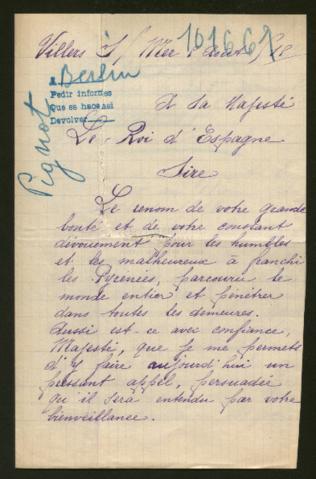 Villers s/ Mer
101661
a Berlin
Pedir informes
Que se hace así
Devolver
Pignot
A Sa Majesté
Le Roi d'Espagne
Sire
Le renom de votre grande
bonté et de votre constant
dévouement pour les humbles
et les malheureux à franchi
les Pyrénées, parcouru le
monde entier et pénétrer
dans toutes les demeures.
Aussi est ce avec confiance,
Majesté, que je me permets
d'y faire aujourd'hui un
pressant appel, persuadée
qu'il sera entendu par votre
bienveillance.